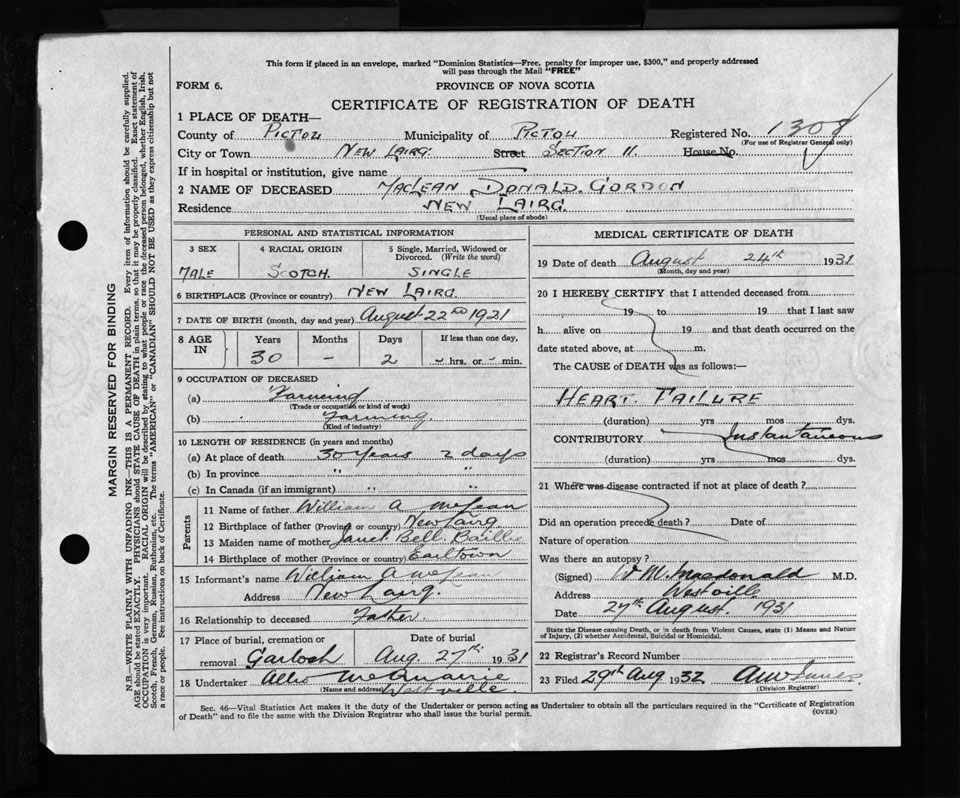 This form if placed in an envelope, marked "Dominion Statistics—Free, penalty for improper use, $300," and properly addressed
will pass through the Mail "FREE"
FORM 6.
PROVINCE OF NOVA SCOTIA
CERTIFICATE OF REGISTRATION OF DEATH
1 PLACE OF DEATH—
County of Pictou Municipality of Pictou Registered No. 1308
(For use of Registrar General only)
City or Town New Lairg. Street Section 11. House No.
If in hospital or institution, give name
2 NAME OF DECEASED MacLean Donald. Gordon
Residence New Lairg.
(Usual place of abode)
PERSONAL AND STATISTICAL INFORMATION
3 SEX 4 RACIAL ORIGIN 5 Single, Married, Widowed or Divorced. (Write the word)
Male Scotch. Single
6 BIRTHPLACE (Province or country) New Lairg.
7 DATE OF BIRTH (month, day and year) August 22nd 1921
8 AGE IN Years Months Days If less than one day.
30 - 2 hrs. or min.
9 OCCUPATION OF DECEASED
(a) Farming
(Trade or occupation or kind of work)
(b) Farming.
(Kind of industry)
10 LENGTH OF RESIDENCE (in years and months)
(a) At place of death 30 years 2 days
(b) In province " "
(c) In Canada (if an immigrant) " "
Parents
11 Name of father William A McLean
12 Birthplace of father (Province or country) New Lairg.
13 Maiden name of mother Janet Bell Baillie
14 Birthplace of mother (Province or country) Earltown
15 Informant's name William A McLean
Address New Lairg.
16 Relationship to deceased Father.
17 Place of burial, cremation or removal Date of burial
Garloch Aug 27th 1931
18 Undertaker McQuarrie
(Name and address) Westville.
MEDICAL CERTIFICATE OF DEATH
19 Date of death August 24th 1931
(Month, day and year)
20 I HEREBY CERTIFY that I attended deceased from
19 to 19 that I last saw
h alive on 19 and that death occurred on the
date stated above, at m.
The CAUSE of DEATH was as follows:—
Heart Failure
(duration) yrs mos dys.
CONTRIBUTORY Instantaneous
(duration) yrs mos dys.
21 Where was disease contracted if not at place of death?
Did an operation precede death? Date of
Nature of operation
Was there an autopsy?
(Signed) W M. Macdonald M.D.
Address Westville
Date 27th August. 1931
State the Disease causing Death, or in Death from Violent Causes, state (1) Means and Nature
of Injury, (2) whether Accidental, Suicidal or Homicidal.
22 Registrar's Record Number
23 Filed 29th Aug 1932 Innes
(Division Registrar)
Sec. 46—Vital Statistics Act makes it the duty of the Undertaker or person acting as Undertaker to obtain all the particulars required in the "Certificate of Registration
of Death" and to file the same with the Division Registrar who shall issue the burial permit.
(OVER)
MARGIN RESERVED FOR BINDING
N.B.—WRITE PLAINLY WITH UNFADING INK—THIS IS A PERMANENT RECORD. Every item of information should be carefully supplied.
AGE should be stated EXACTLY. PHYSICIANS should STATE CAUSE OF DEATH in plain terms, so that it may be properly classified. Exact statement of
OCCUPATION is very important. RACIAL ORIGIN will be described by stating to what people or race the deceased person belonged, whether English, Irish,
Scotch, French, German, Russian, Ruthenian, etc. The terms "AMERICAN" or "CANADIAN" SHOULD NOT BE USED as they express citizenship but not
a race or people. See instructions on back of Certificate.